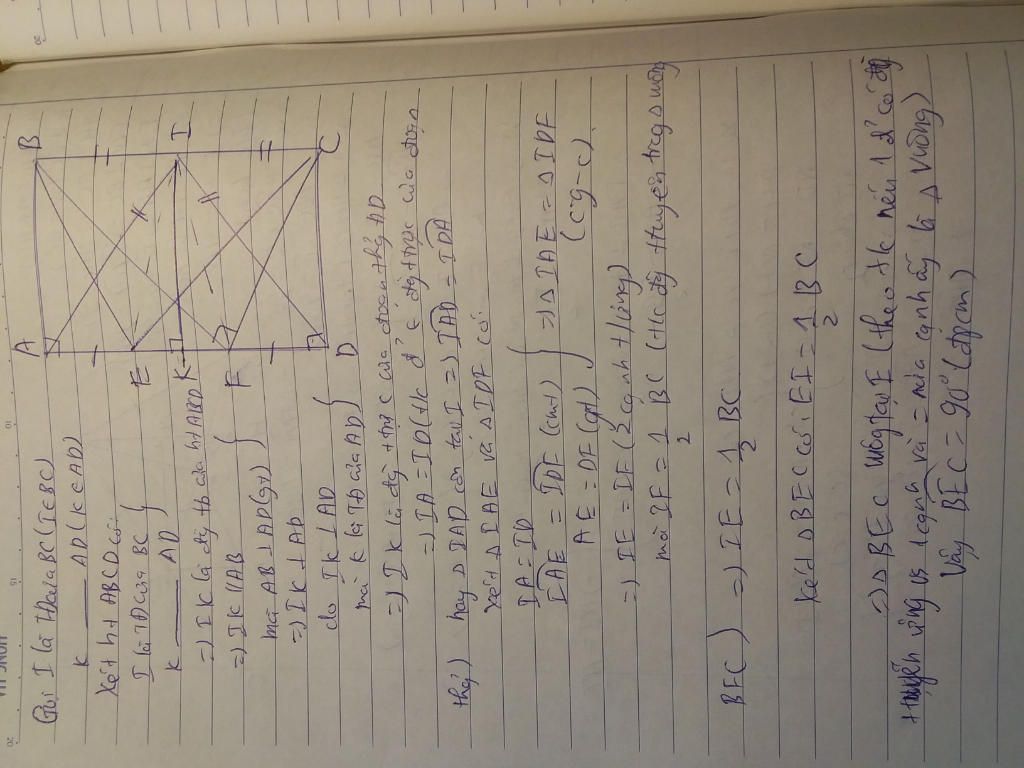 Gọi I là tđ của BC (I∈BC)
K ——— AD (K∈AD)
Xét ht ABCD có:
I là TĐ của BC }
K ——— AD
=) IK là đg tb của ht ABCD
=) IK // AB }
mà AB ⊥ AD (gt)
=) IK ⊥ AD
do IK ⊥ AD }
mà K là Tđ của AD
=) IK là đg trực của đoạn thg AD
=) IA = ID (t/c đ' ∈ đg trực của đoạn
thg) hay Δ IAD cân tại I =) IAD = IDA
Xét Δ IAE và Δ IDF có:
IA = ID
IAE = IDF (cmt) } =) Δ IAE = Δ IDF
AE = DF (gt) (c-g-c)
=) IE = IF (2 cạnh t/ứng)
mà IF = 1/2 BC (t/c đg tr/tuyến trog Δ vuông
BFC) =) IE = 1/2 BC
Xét Δ BEC có: EI = 1/2 BC
=) Δ BEC vuông tại E (theo t/c nếu 1 Δ có đg
tr/tuyến ứng vs 1 cạnh và = nửa cạnh ấy là Δ vuông)
Vậy BEC = 90° (đpcm)
A
B
I
C
D
E
K
F